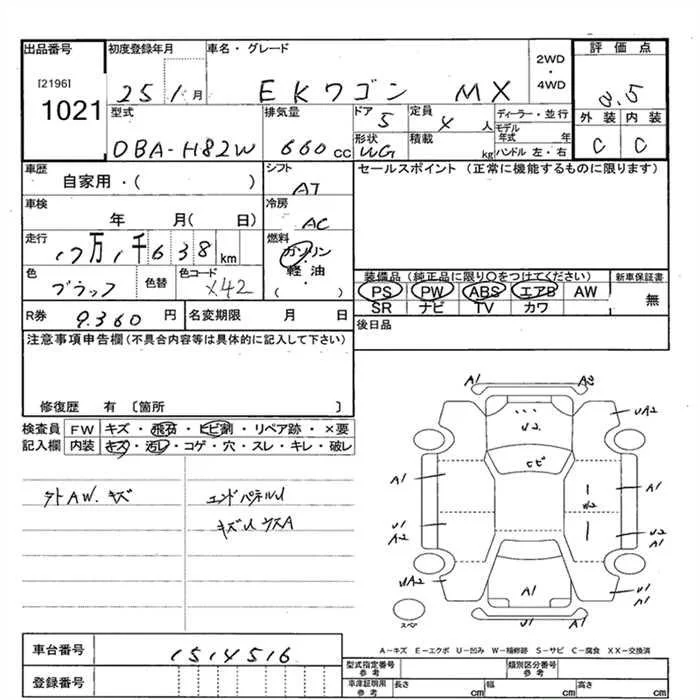 出品番号 初度登録年月 車名・グレード 2WD・4WD 評価点
[2196] 1021 25 1月 EKワゴン MX 3.5
型式 排気量 ドア 定員 ディーラー・並行 外装 内装
DBA-H82W 660cc 5 4人 モデル年式 年 C C
形状 積載
WG kg ハンドル 左・右
車歴 シフト セールスポイント (正常に機能するものに限ります)
自家用・( ) AT
車検 冷房
年 月( 日) AC
走行 燃料
17万1千638km ガソリン・軽油
( )
色 色替 色コード 装備品 (純正品に限り○をつけてください) 新車保証書
ブラック X42 PS PW ABS エアB AW 無
SR ナビ TV カワ
R券 9.360円 名変期限 月 日 後日品
注意事項申告欄 (不具合内容等は具体的に記入して下さい)
修復歴 有 〔箇所 〕
検査員 FW キズ・飛石・ヒビ割・リペア跡・×要
記入欄 内装 キズ・汚レ・コゲ・穴・スレ・キレ・破レ
外AW.キズ エンドパネルU
キズU ウスA
A1
U2 UA2
ヒビ
A1 A1
W2
U1 U2
A1 A1
UA2 A1 U1
A1
U1
A1
スペ
A-キズ E-エクボ U-凹み W-補修跡 S-サビ C-腐食 XX-交換済
車台番号 1514516
登録番号
型式指定番号参考 類別区分番号参考
車庫証明用参考 長さ cm 幅 cm 高さ cm